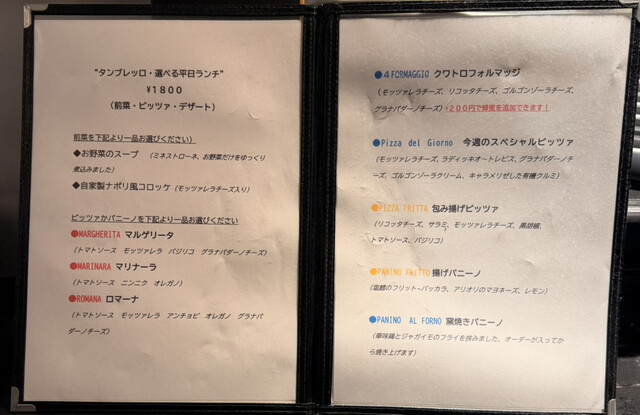 “タンブレッロ・選べる平日ランチ”
¥1800
(前菜・ピッツァ・デザート)
前菜を下記より一品お選びください)
◆お野菜のスープ (ミネストローネ、お野菜だけをゆっくり
煮込みました)
◆自家製ナポリ風コロッケ(モッツァレラチーズ入り)
ピッツァかパニーノを下記より一品お選びください
●MARGHERITA マルゲリータ
(トマトソース モッツァレラ バジリコ グラナパダーノチーズ)
●MARINARA マリナーラ
(トマトソース ニンニク オレガノ)
●ROMANA ロマーナ
(トマトソース モッツァレラ アンチョビ オレガノ グラナパ
ダーノチーズ)
●4FORMAGGIO クワトロフォルマッジ
(モッツァレラチーズ、リコッタチーズ、ゴルゴンゾーラチーズ、
グラナパダーノチーズ)+200円で蜂蜜を追加できます!
●Pizza del Giorno 今週のスペシャルピッツァ
(モッツァレラチーズ、ラディッキオートレビス、グラナパダーノチ
ーズ、ゴルゴンゾーラクリーム、キャラメリゼした有機クルミ)
●PIZZA FRITTA 包み揚げピッツァ
(リコッタチーズ、サラミ、モッツァレラチーズ、黒胡椒、
トマトソース、バジリコ)
●PANINO FRITTO 揚げパニーノ
(塩鱈のフリット-バッカラ、アリオリのマヨネーズ、レモン)
●PANINO AL FORNO 窯焼きパニーノ
(華味鶏とジャガイモのフライを挟みました、オーダーが入ってか
ら焼き上げます)